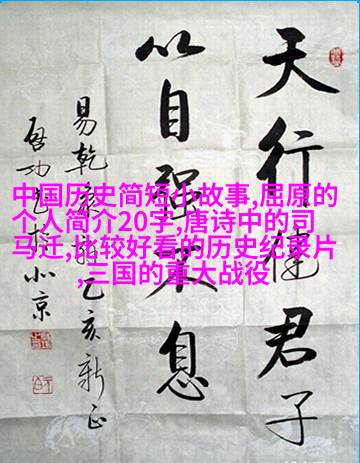 天行健君子
以自强不息
易乾
乙亥新正
启功
北京
中国历史简短小故事,屈原的
个人简介20字,唐诗中的司
马迁,比较好看的历史纪录片
,三国的重大战役